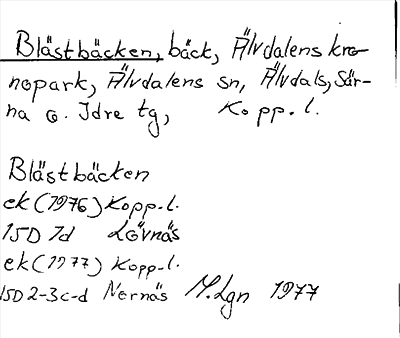 Blästbäcken, bäck, Älvdalens kro-
nopark, Älvdalens sn, Älvdals, Sär-
na o. Idre tg, Kopp. l.
Blästbäcken
ek (1976) Kopp. l.
15D 1d Lövnäs
ek (1977) Kopp. l.
15D 2-3c-d Nornäs M. Lgn 1977